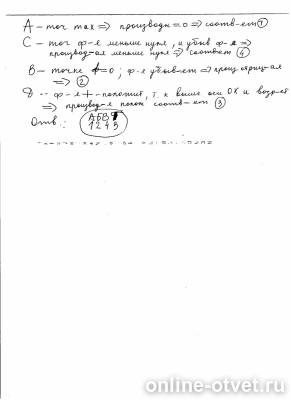 А – точ max ⇒ производн = 0 ⇒ соотв-ет ①
С – точ ф-я меньше нуля, и убыв ф-я ⇒
производ-ая меньше нуля ⇒ соотв-ет ④
В – точке f=0; ф-я убыв-ет ⇒ произ. отриц-ая
⇒ ②
ф-я + – положит, т.к выше оси ОХ и возр-ет
⇒ производ-я полож соотв-ет ③
Отв:
1 2 4 3
online-otvet.ru